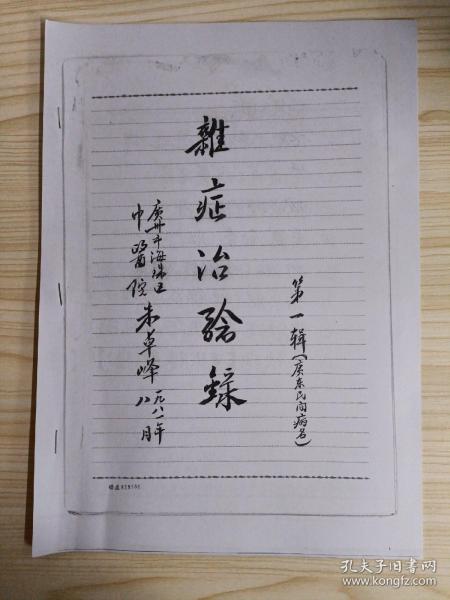 第一辑（广东民间病名）
雜症治验錄
广州市海珠区
中医院 朱卓峰 一九八一年
八月
孔夫子旧书网
www.kongfz.com